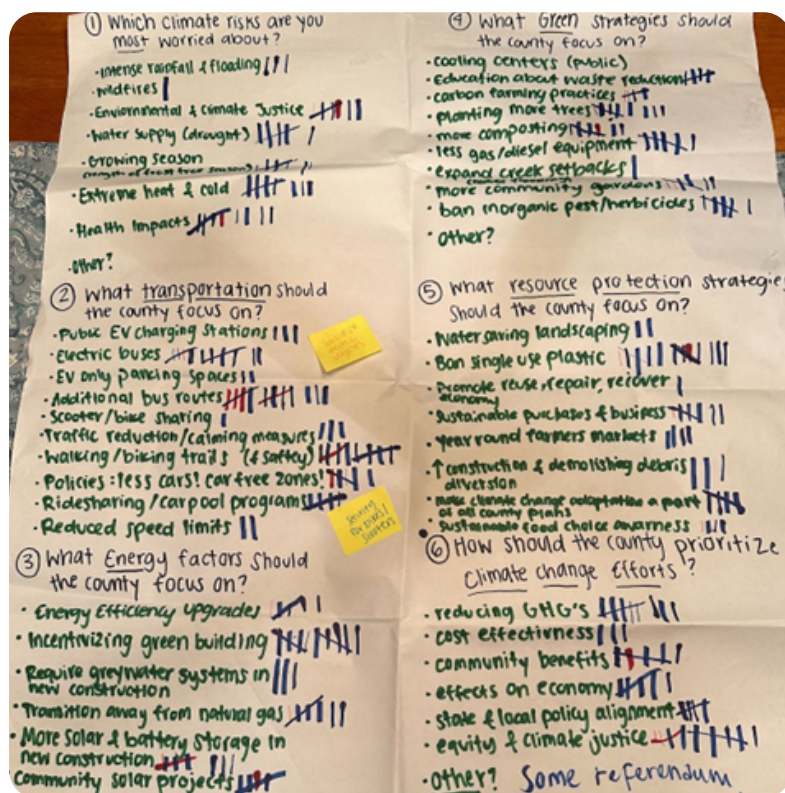 ① Which climate risks are you
most worried about?
· Intense rainfall & flooding
· Wildfires
· Enviornmental & climate Justice
· Water Supply (drought)
· Growing Season
· Extreme heat & cold
· Health Impacts
· Other?
② What transportation should
the county focus on?
· Public EV charging stations
· Electric buses
· EV only parking spaces
· Additional bus routes
· Scooter/bike sharing
· Traffic reduction/calming measures
· Walking/biking trails (& saftey)
· Policies: less cars! Car free zones!
· Ridesharing/carpool programs
· Reduced speed limits
security
for bikes/
scooters
③ What Energy factors should
the county focus on?
· Energy Efficiency upgrades
· Incentivizing green building
· Require greywater systems in
new construction
· Transition away from natural gas
· More Solar & battery storage in
new construction
Community solar projects
④ What Green strategies should
the county focus on?
· cooling centers (public)
· Education about waste reduction
· carbon farming practices
· planting more trees
· more composting
· less gas/diesel equipment
· expand creek setbacks
· more community gardens
· ban inorganic pest/herbicides
· other?
⑤ What resource protection strategie
should the county focus on?
· Water saving landscaping
· Ban single use plastic
· Promote reuse, repair, recover
economy
· Sustainable purchases & business
· year round farmers markets
· ↑ construction & demolishing debris
diversion
· make climate change adaptation a part
of all county plans
· Sustainable food choice awarness
⑥ How should the county prioritize
Climate change Efforts?
· reducing GHG's
· cost effectivness
· community benefits
· effects on economy
· state & local policy alignment
· equity & climate justice
· other? Some referendum